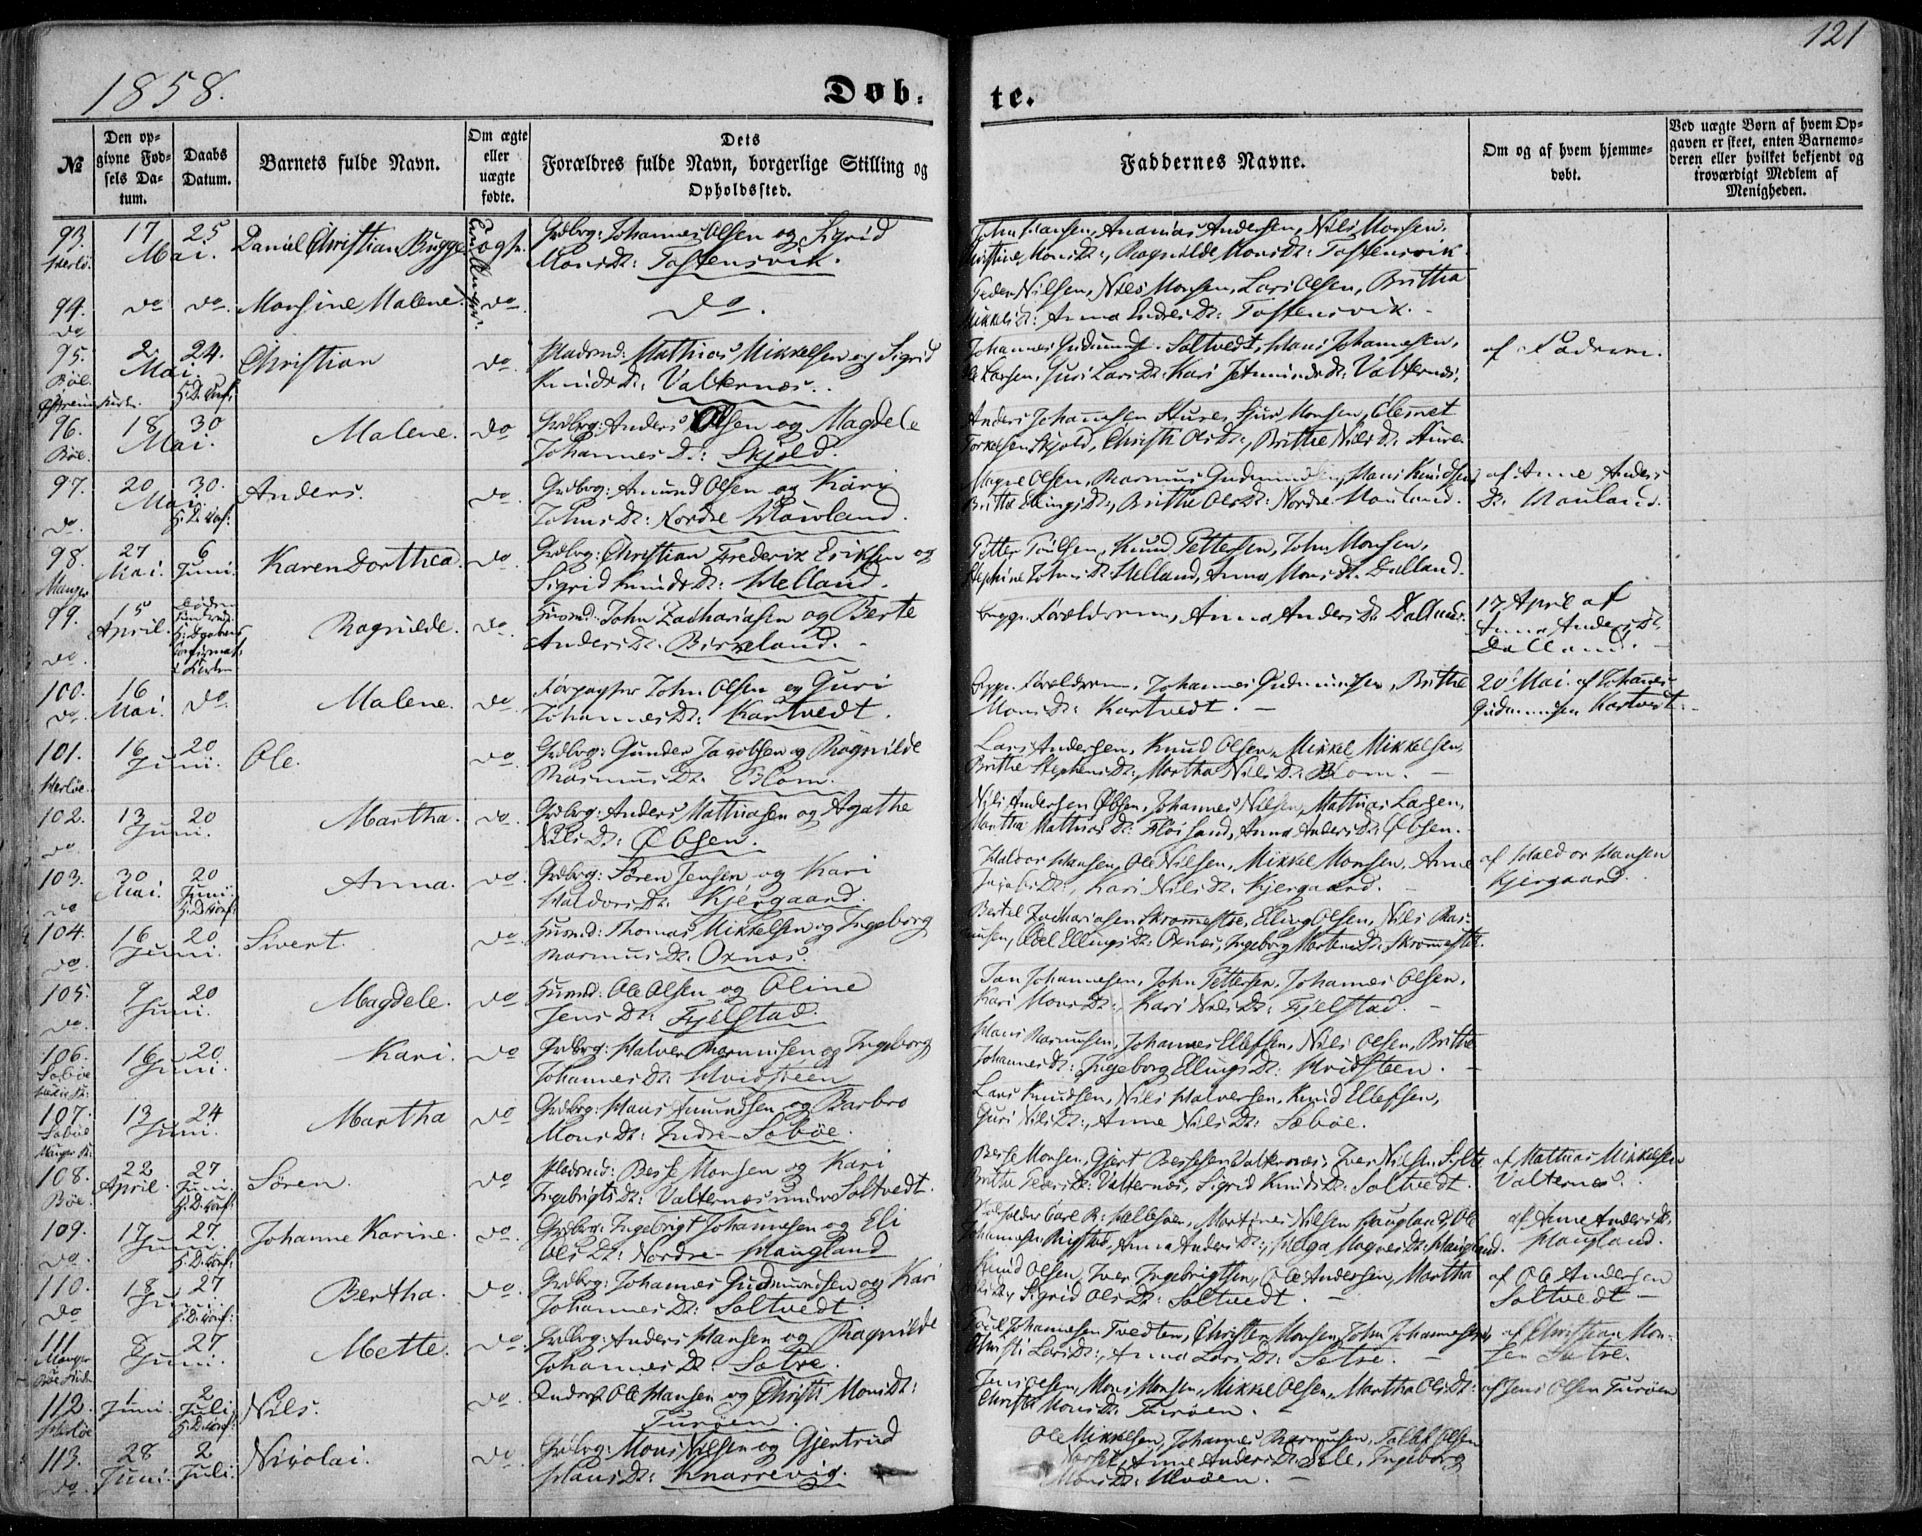 121
1858.
Døb- te.
№
Den opgivne Fødsels Datum.
Daabs Datum.
Barnets fulde Navn.
Om ægte eller uægte fødte.
Dets Forældres fulde Navn, borgerlige Stilling og Opholdssted.
Faddernes Navne.
Om og af hvem hjemmedøbt.
Ved uægte Børn af hvem Opgaven er skeet, enten Barnemoderen eller hvilket bekjendt og troværdigt Medlem af Menigheden.
93. Herlø. 17 Mai. 25 Daniel Christian Bugge. ægte. Grdbrg: Johannes Olsen og Sigrid
Monsdt: Toftensvik.
John Hansen, Ananias Andersen, Nils Monsen,
Monsdt:, Ragnilde Monsdt: Toftensvik.
94. do do do. Monsine Malene. do. do.
Peder Nilsen, Niels Monsen, Lars Olsen, Britha
Mikkelsdt: Anna Endresdt: Toftensvik.
95. Bøe. 2. Mai. 24. H.D. Conf: Christian do. Pladsmd: Mathias Mikkelsen og Sigrid
Knudsdt: Valternæs.
Johannes Gudmunds. Soltvedt, Hans Johannesen,
Ole Larsen, Guri Larsdt: Kari Valternæs.
af Faderen.
96. Bøe. 18 Mai. 30 Malene. do Grdbrg: Anders Olsen og Magdele
Johannesdt: Skjold.
Anders Johannesen Hure, Sjur Monsen,
Torkelsen Skjold, Christi Olsdt:, Brithe Nilsdt: Hure.
97. do. 20 Mai 30. H.D. Conf: Anders. do. Grdbrg: Amund Olsen og Kari
Johnsdt: Nordre Hougland.
Magne Olsen, Rasmus Gudmundsen, Hans Knudsen,
Britha Ellingsdt:, Brithe Olsdt: Nordre Hougland.
af Anne Anders
Dt: Hougland.
98. Manger 27 Mai. 6 Juni. Karen Dorthea. do Grdbrg: Christian Frederik Eriksen og
Sigrid Knudsdt: Helland.
Petter Poulsen, Knud Pettersen, John Monsen,
Johnsdt: Helland, Anna Monsdt: Dalland.
99. do. 15 April. Ragnilde. do. Husmd: John Zachariasen og Berte
Andersdt: Birkeland.
Begge Forældrene, Anna Andersdt: Dalland.
17 April af
Anna Andersdt:
Dalland.
100. do. 16 Mai. do. Malene. do. Forpagter John Olsen og Guri
Johannesdt: Kartvedt.
Begge Forældrene, Johannes Gudmundsen, Brithe
Monsdt: Kartvedt.
20 Mai. af Johannes
Gudmundsen Kartvedt.
101. Herløe. 16 Juni. 20 Ole. do. Grdbrg: Gunder Jacobsen og Ragnilde
Rasmusdt: Blom.
Lars Andersen, Knud Olsen, Mikkel Mikkelsen,
Brithe Stephensdt: Martha Nilsdt: Blom.
102. do. 13 Juni. 20 Martha. do. Grdbrg: Anders Mathiasen og Agathe
Nilsdt: Øbsen.
Nils Andersen Øbsen, Johannes Nilsen, Mathias Larsen,
Martha Mathiasdt: Fløisand, Anna Andersdt: Øbsen.
103. do 30 Mai. 20 Juni. H.D. Conf: Anna. do. Grdbrg: Søren Jensen og Kari
Haldorsdt: Kjergaard.
Haldor Hansen, Ole Nilsen, Mikkel Monsen, Anne
Kari Nilsdt: Kjergaard.
af Haldor Hansen
Kjergaard.
104. do. 16 Juni. 20 Sivert. do Husmd: Thomas Mikkelsen og Ingeborg
Rasmusdt: Oxnæs.
Bertel Zachariasen Skrommestre, Elling Olsen, Nils Ras-
musen, Ellingsdt: Oxnæs, Ingeborg Mortensdt: Skrommestre.
105. do. 9 Juni. 20 Magdele. do Husmd: Ole Olsen og Oline
Jensdt: Fjelstad.
Jan Johannesen, John Pettersen, Johannes Olsen,
Kari Monsdt: Kari Nilsdt: Fjelstad.
106. Sæbøe 16 Juni. 20. Kari. do Grdbrg: Halver Rasmusen og Ingeborg
Johannesdt: Hvidsteen
Hans Rasmusen, Johannes Ellefsen, Nils Olsen, Brithe
Johannesdt: Ingeborg Ellingsdt: Hvidsteen.
107. Sæbøe Manger 13 Juni. 24 Martha do Grdbrg: Hans Amundsen og Barbro
Monsdt: Indre-Sæbøe.
Lars Knudsen, Nils Halversen, Knud Ellefsen,
Guri Nilsdt:, Anne Nilsdt: Sæbøe.
108. Bøe. 22 April. 27 Juni. H.D. Conf: Søren. do Pladsmd: Berse Monsen og Kari
Ingebrigtsdt: Valternæs under Soltvedt.
Berse Monsen, Gjert Bersesen Valternæs, Iver Nilsen
Brithe Valternæs, Sigrid Knudsdt: Soltvedt.
af Mathias Mikkelsen
Valternæs.
109. do. 17 Juni. 27. H.D. Conf: Johanne Karine. do. Grdbrg: Ingebrigt Johannesen og Eli
Olsdt: Nordre-Haugland
Carl R: Hellesen, Martines Nilsen Haugland, Ole
Johannesen Anna Andersdt:, Helga Magnesdt: Haugland.
af Anne Andersdt:
Haugland.
110. do 18 Juni. 27 H.D. Conf: Bertha. do. Grdbrg: Johannes Gudmundsen og Kari
Johannesdt: Soltvedt.
Knud Olsen, Iver Ingebrigtsen, Ole Andersen, Martha
Sigrid Olsdt: Soltvedt.
af Ole Andersen
Soltvedt
111 Manger 8 Juni. 27 Mette. do. Grdbrg: Anders Hansen og Ragnilde
Johannesdt: Sætre.
Johannesen Tvedten, Christen Monsen, John Johannesen,
Christi Larsdt:, Anna Larsdt: Sætre.
af Christian Mon-
sen Sætre.
112. Herløe 1 Juni. 2 Juli. H.D. Conf: Nils. do. Ole Hansen og Christi Monsdt:
Turøen.
Jens Olsen, Mons Monsen, Mikkel Olsen, Martha Olsdt:
Christi Monsdt: Turøen.
af Jens Olsen Turøen
113. do 28 Juni. 2 Juli. Nicolai. do. Grdbrg: Mons Nilsen og Gjertrud
Hansdt: Knarrevig.
Ole Mikkelsen, Johannes Rasmusen,
Anne Andersdt: Sele, Ingeborg
Monsdt: Ulvøen.